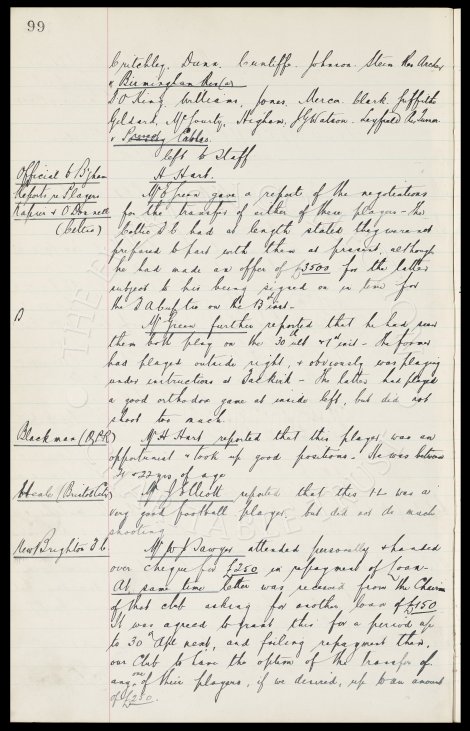 99
Critchley, Dunn, Cunliffe, Johnson, Stein. Res Archer
& Birmingham Res (a)
D O King, Williams, Jones, Mercer, Clark, Griffiths
Geldard, McGourty, Higham, J G Watson. Leyfield. Res Turner
& Cables
left to Staff
H Hart.
Official to B'gham
Reports re Players
Napier & O'Donnell
(Celtic)
Mr Green gave a report of the negotiations
for the transfer of either of these players - the
Celtic F C had at length stated they were not
prepared to part with them at present, although
he had made an offer of £3500 for the latter
subject to his being signed on in time for
the F A Cup tie on the 13th inst.
Mr Green further reported that he had seen
them both play on the 30th ult & 1st inst. The former
had played outside right, & obviously was playing
under instructions at Falkirk - The latter had played
a good orthodox game at inside left, but did not
shoot too much.
Blackman (Q.P.R)
Mr H Hart reported that this player was an
opportunist & took up good positions. He was between
& 22 yrs of age
Heale (Bristol City)
Mr J Elliott reported that this H was a
very good football player but did not do much
shooting
New Brighton F C
Mr W J Sawyer attended personally & handed
over cheque for £250 in repayment of loan.
At same time letter was received from the Chairman
of that club asking for another loan of £150
It was agreed to grant this for a period up
to 30th April next, and failing repayment then,
our Club to have the option of the transfer of
any one of their players, if we desired, up to an amount
of £250.